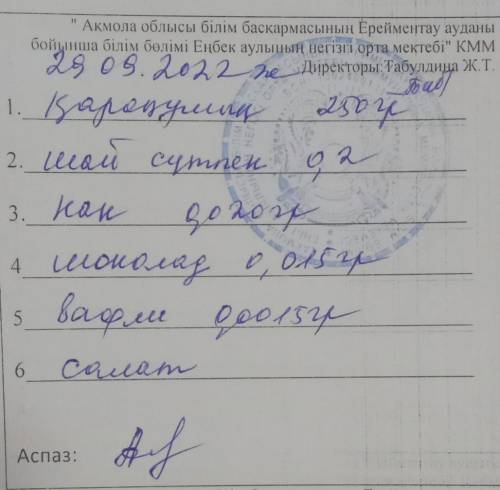 " Ақмола облысы білім басқармасының Ерейментау ауданы
бойынша білім бөлімі Еңбек аулының негізгі орта мектебі" КММ
29 09. 2022 ж Директоры: Табулдина Ж.Т.
1. Қарақұмық 250гр
2. шай сүтпен 0,2
3. нан 0,020гр
4 шоколад 0,015гр
5 вафли 0,0015гр
6 салат
Аспаз: